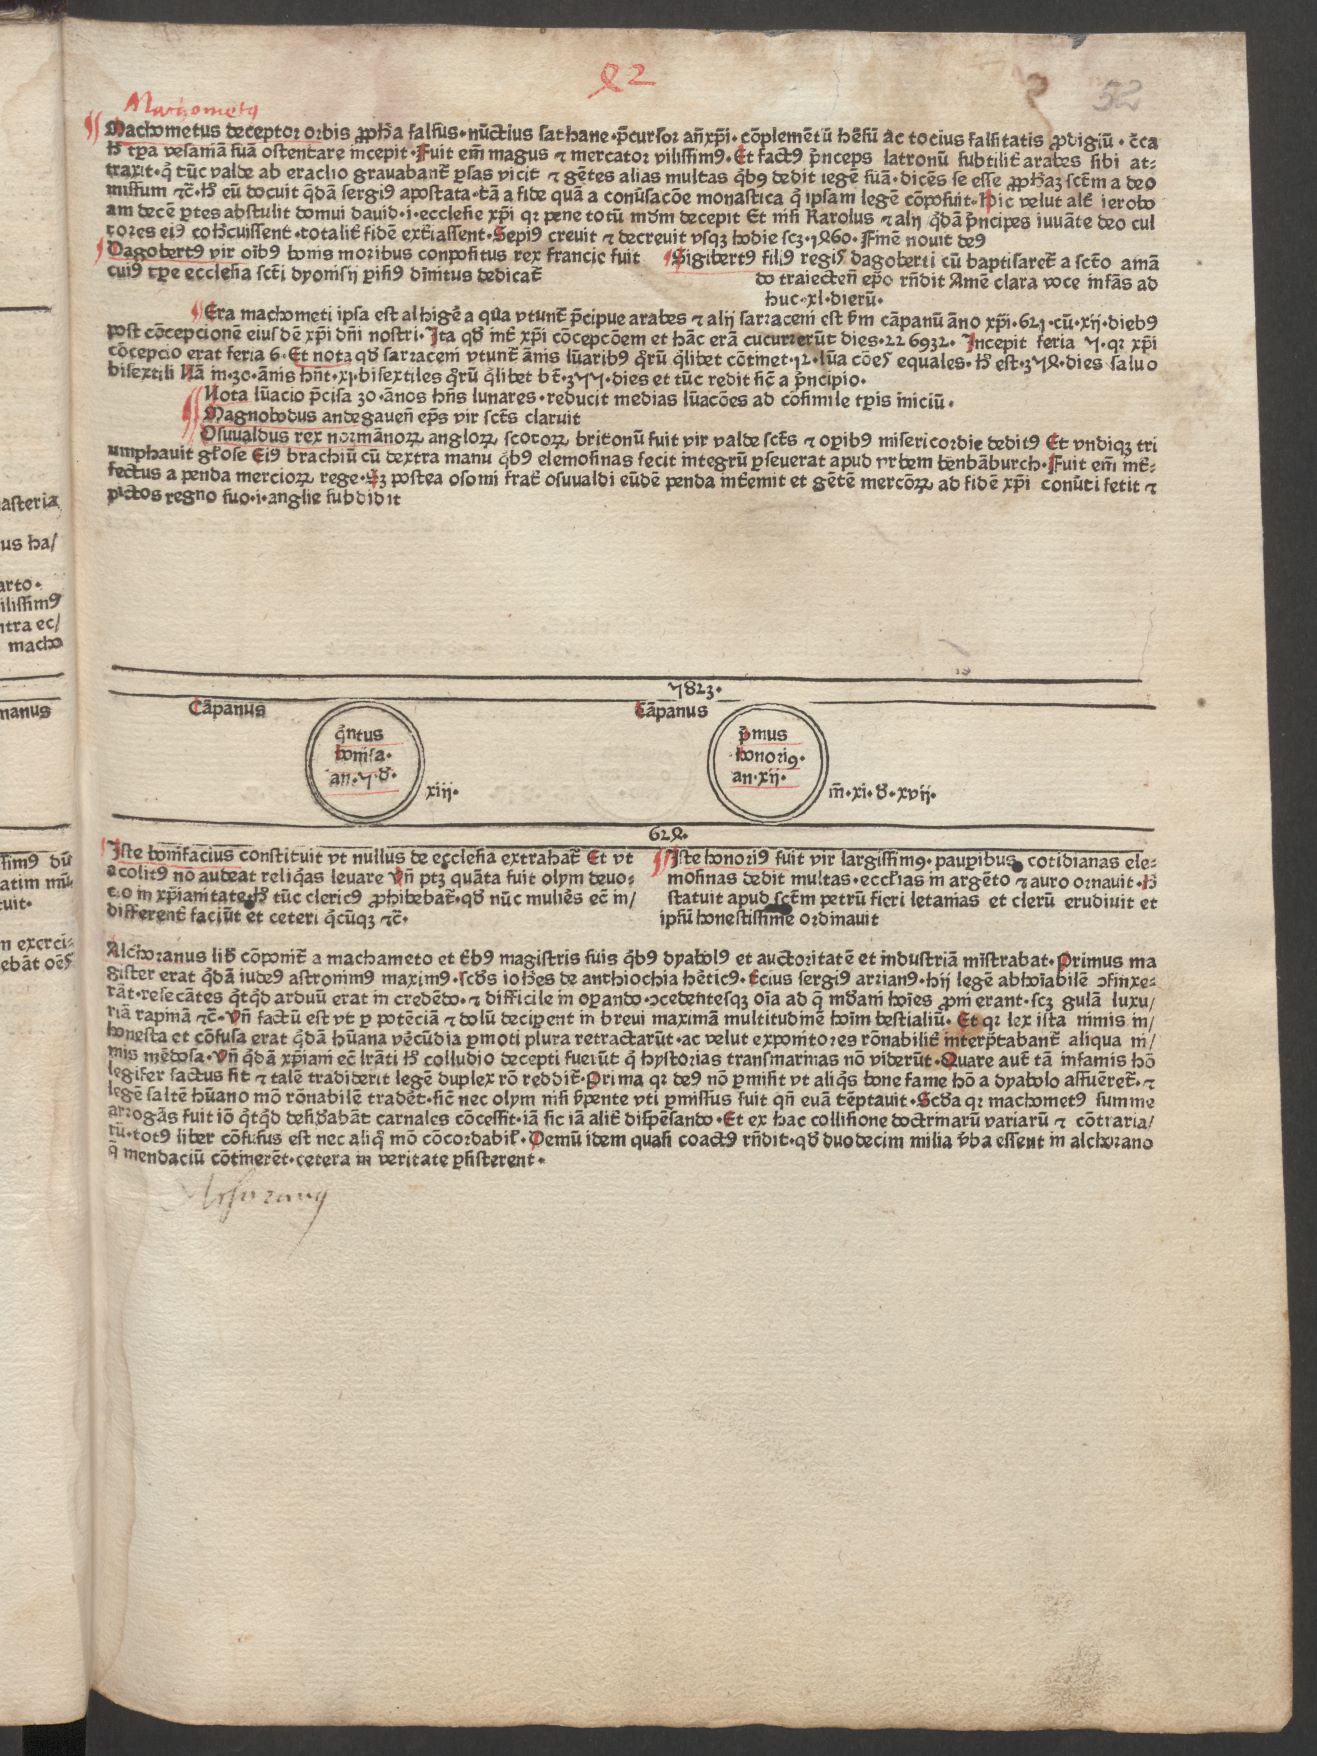 52
Machometus
Machometus deceptor orbis ꝓph̄a falsus · nūctius sathane · p̄cursor anx̄pi · cōplemētū hēsū Ac tocius falsitatis ꝓdigiū · c̄ca
h̄ tꝑa vesaniā suā ostentare incepit · Fuit em̄ magus ⁊ mercator vilissimꝰ · Et factꝰ p̄nceps latronū subtilit̄ arabes sibi at⸗
traxit · q̄ tūc valde ab eraclio grauabant̄ ꝑsas vicit ⁊ gētes alias multas q̄bꝰ dedit legē suā · dicēs se esse ꝓph̄aꝫ sct̄m a deo
missum ⁊c̄ · h̄ eū docuit q̄dā sergiꝰ apostata · tā a fide quā a conūsacōe monastica q̄ ipsam legē cōposuit · Hic velut alt̄ ierobo
am decē ꝑtes abstulit domui dauid · i · ecclesie xp̄i qꝛ pene totū mūdm decepit Et nisi Karolus ⁊ alij q̄dā p̄ncipes iuuāte deo cul
tores eiꝰ coh̄cuissent · totalit̄ fidē ext̄iassent · Sepiꝰ creuit ⁊ decreuit vsqꝫ hodie scꝫ · 1ꝭ60 · Finē nouit deꝰ
Dagobertꝰ vir oībꝰ bonis moribus conpositus rex francie fuit
cuiꝰ tꝑe ecclesia sct̄i dyonisij ꝑisiꝰ dīnitus dedicat̄
Sigibertꝰ filiꝰ regis dagoberti cū baptisaret̄ a sct̄o amā
do traiecten̄ ep̄o rn̄dit Amē clara voce infās ad
huc · xl · dierū ·
Era machometi ipsa est alhigēa qua vtunt̄ p̄cipue arabes ⁊ alij sarraceni est ꝟm cāpanū āno xp̄i · 621 · cū · xij · diebꝰ
post cōcepcionē eius dē xp̄i dn̄i nostri · Ita qd̄ int̄ xp̄i cōcepcōem et hāc erā cucurrerūt dies · 22 6932 · Incepit feria 7 · qꝛ xp̄i
cōcepcio erat feria 6 · Et notaꝫ qd̄ sarraceni vtunt̄ ānis lūaribꝰ q̄rū q̄libet cōtinet · 12 · lūacōes equales · h̄ est · 37ꝭ · dies saluo
bisextili Nā in · 30 · ānis hn̄t · xj · bisextiles q̄rū q̄libet ht̄ · 377 · dies et tūc redit sic̄ a p̄ncipio ·
Nota lūacio p̄cisa 30 · ānos hn̄s lunares · reducit medias lūacōes ad cōsimile tꝑis iniciū ·
Magnobodus andegauen̄ ep̄s vir sct̄s claruit
Osuualdus rex normānoꝝ angloꝝ scotoꝝ britonū fuit vir valde sct̄s ⁊ oꝑibꝰ misericordie deditꝰ Et vndiqꝫ tri
umphauit gl̄ose Eiꝰ brachiū cū dextra manu q̄bꝰ elemosinas fecit integrū ꝑseuerat apud vrbem benbāburch · Fuit em̄ int̄⸗
fectus a penda mercioꝝ rege · Sꝫ postea osomi frat̄ osuualdi eūdē penda int̄emit et gētē mercōꝝ ad fidē xp̄i conūti fetit ⁊
pictos regno suo · i · anglie subdidit
7823 ·
Cāpanus
q̄ntus
bonifa ·
an · 7 · d̄ ·
xiij ·
Cāpanus
p̄mus
honoriꝰ ·
an · xij ·
m̄ · xi · d̄ · xvij ·
62ꝭ ·
Iste bonifacius constituit vt nullus de ecclesia extrahat̄ Et vt
acolitꝰ nō audeat reliq̄as leuare Vn̄ ptꝫ quāta fuit olym deuo⸗
tio in xp̄ianitate h̄ tūc clericꝰ ꝓhibebat̄ · qd̄ nūc muliēs ec̄ in/
different̄ faciūt et ceteri q̄cūqꝫ ⁊c̄ ·
Iste honoriꝰ fuit vir largissimꝰ · pauꝑibus cotidianas ele⸗
mosinas dedit multas · eccl̄ias in argēto ⁊ auro ornauit · H̄
statuit apud sct̄m petrū fieri letanias et clerū erudiuit et
ipsū honestissime ordinauit
Alchoranus lib̄ cōponit̄ a machameto et t̄bꝰ magistris suis q̄bꝰ dyabolꝰ et auctoritatē et industriā mīstrabat · Primus ma
gister erat q̄dā iudeꝰ astronimꝰ maximꝰ · scd̄s ioh̄es de anthiochia hēticꝰ · tcius sergiꝰ arrianꝰ · hij legē abhoīabilē ↄfinxe⸗
rāt · resecātes q̄tq̄d arduū erat in credēdo · ⁊ difficile in oꝑando · ↄcedentesqꝫ oīa ad q̄ mūdani hoīes ꝓni erant · scꝫ gulā luxu/
riā rapinā ⁊c̄ · Vn̄ factū est vt ꝑ potēciā ⁊ dolū deciꝑent in breui maximā multitudinē hoīm bestialiū · Et qꝛ lex ista nimis in/
honesta et cōfusa erat q̄dā hūana v̄ecūdia ꝑmoti plura retractarūt · ac velut expositores rōnabilit̄ interp̄tabant̄ aliqua ni/
mis mēdosa · Vn̄ q̄dā xp̄iani ec̄ lrāti h̄ colludio decepti fuerūt q̄ hystorias transmarinas nō viderūt · Quare aut̄ tā infamis hō
legifer factus sit ⁊ talē tradiderit legē duplex rō reddit̄ · Prima qꝛ deꝰ nō ꝑmisit vt aliq̄s bone fame hō a dyabolo assuēret̄ · ⁊
legē saltē hūano mō rōnabilē tradēt · sic̄ nec olym nisi ꝟpente vti ꝑmissus fuit qn̄ euā tēptauit · Scd̄a qꝛ machometꝰ summe
arrogās fuit iō q̄tq̄d desid̄abāt carnales cōcessit · iā sic iā alit̄ dispēsando · Et ex hac collisione doctrinarū variarū ⁊ cōtraria/
rū · totꝰ liber cōfusus est nec aliq̄ mō cōcordabil̄ · Demū idem quasi coactꝰ rn̄dit · qd̄ duodecim milia v̄ba essent in alchorano
q̄ mendaciū cōtinerēt · cetera in veritate ꝑsisterent ·
Alchoranus